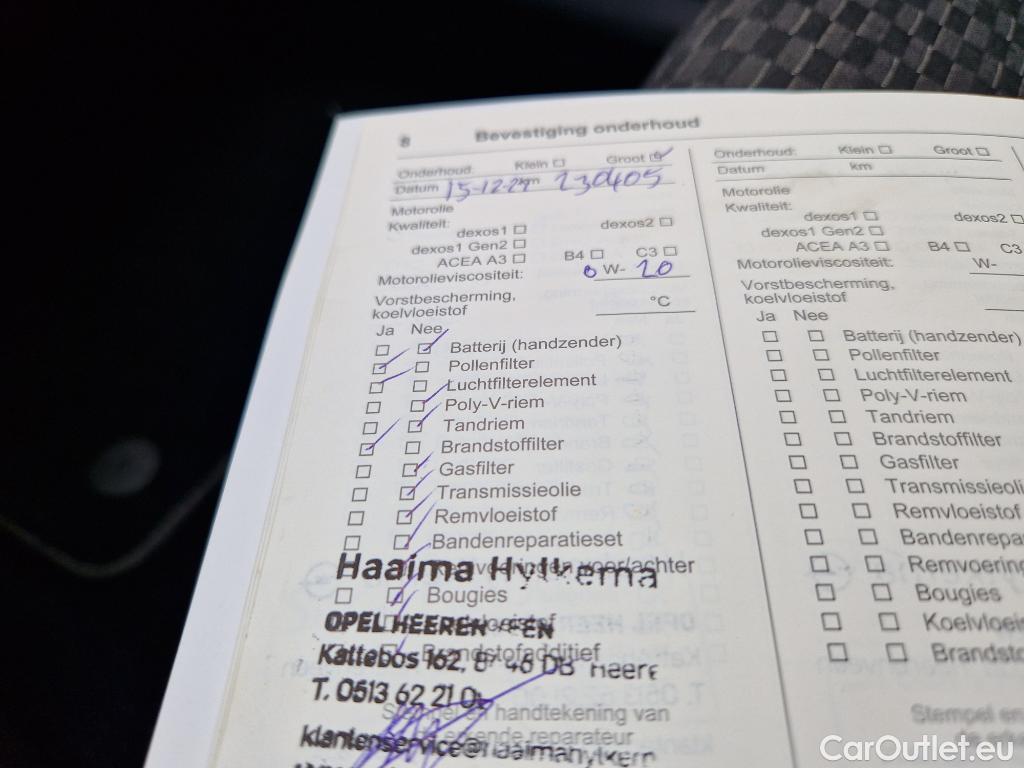 8 Bevestiging onderhoud
Onderhoud: Klein Groot
Datum 15-12-22 km 230405
Motorolie
Kwaliteit:
dexos1 dexos2
dexos1 Gen2
ACEA A3 B4 C3
Motorolieviscositeit: 0 W- 20
Vorstbescherming,
koelvloeistof °C
Ja Nee
Batterij (handzender)
Pollenfilter
Luchtfilterelement
Poly-V-riem
Tandriem
Brandstoffilter
Gasfilter
Transmissieolie
Remvloeistof
Bandenreparatieset
Remvoeringen voor/achter
Haaima Hylkema
Bougies
OPEL HEERENVEEN
Brandstofadditief
Kattebos 162,
T. 0513 62 21
Stempel en handtekening van
reparateur
Onderhoud: Klein Groot
Datum km
Motorolie
Kwaliteit:
dexos1 dexos2
dexos1 Gen2
ACEA A3 B4 C3
Motorolieviscositeit: W-
Vorstbescherming,
koelvloeistof
Ja Nee
Batterij (handzender)
Pollenfilter
Luchtfilterelement
Poly-V-riem
Tandriem
Brandstoffilter
Gasfilter
Transmissieoli
Remvloeistof
Bandenrepa
Remvoering
Bougies
Koelvloeis
Brandsto
Stempel en
CarOutlet.eu